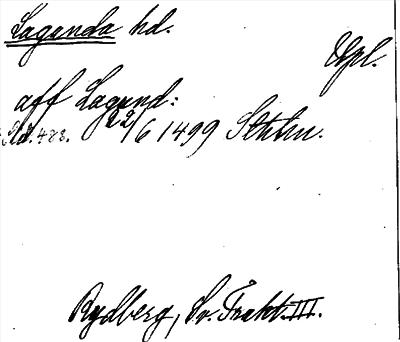 Lagunda hd.
Upl.
aff Lagund:
Sid. 488. 22/6 1499 Sthlm.
Rydberg, Sv. Trakt. III.